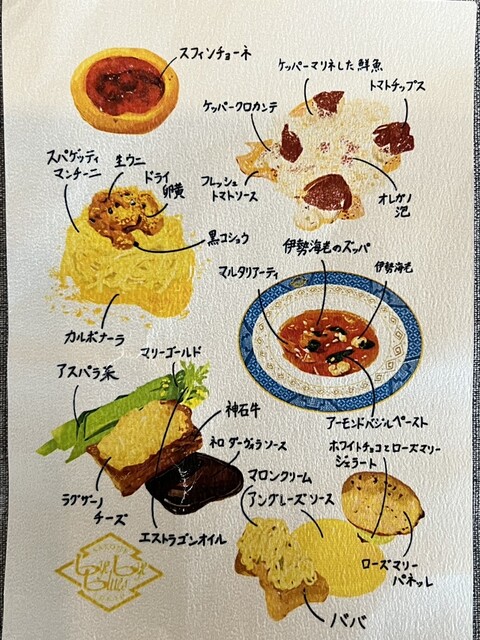 スフィンチョーネ
ケッパーマリネした鮮魚
トマトチップス
ケッパークロカンテ
フレッシュ
トマトソース
オレガノ
泡
スパゲッティ
マンチーニ
生ウニ
ドライ
卵黄
黒コショウ
カルボナーラ
伊勢海老のズッパ
マルタリアーティ
伊勢海老
アーモンドバジルペースト
アスパラ菜
マリーゴールド
神石牛
ネロ ダーヴォラソース
ラグザーノ
チーズ
エストラゴンオイル
ホワイトチョコとローズマリー
ジェラート
マロンクリーム
アングレーズソース
ローズマリー
パネッレ
ババ